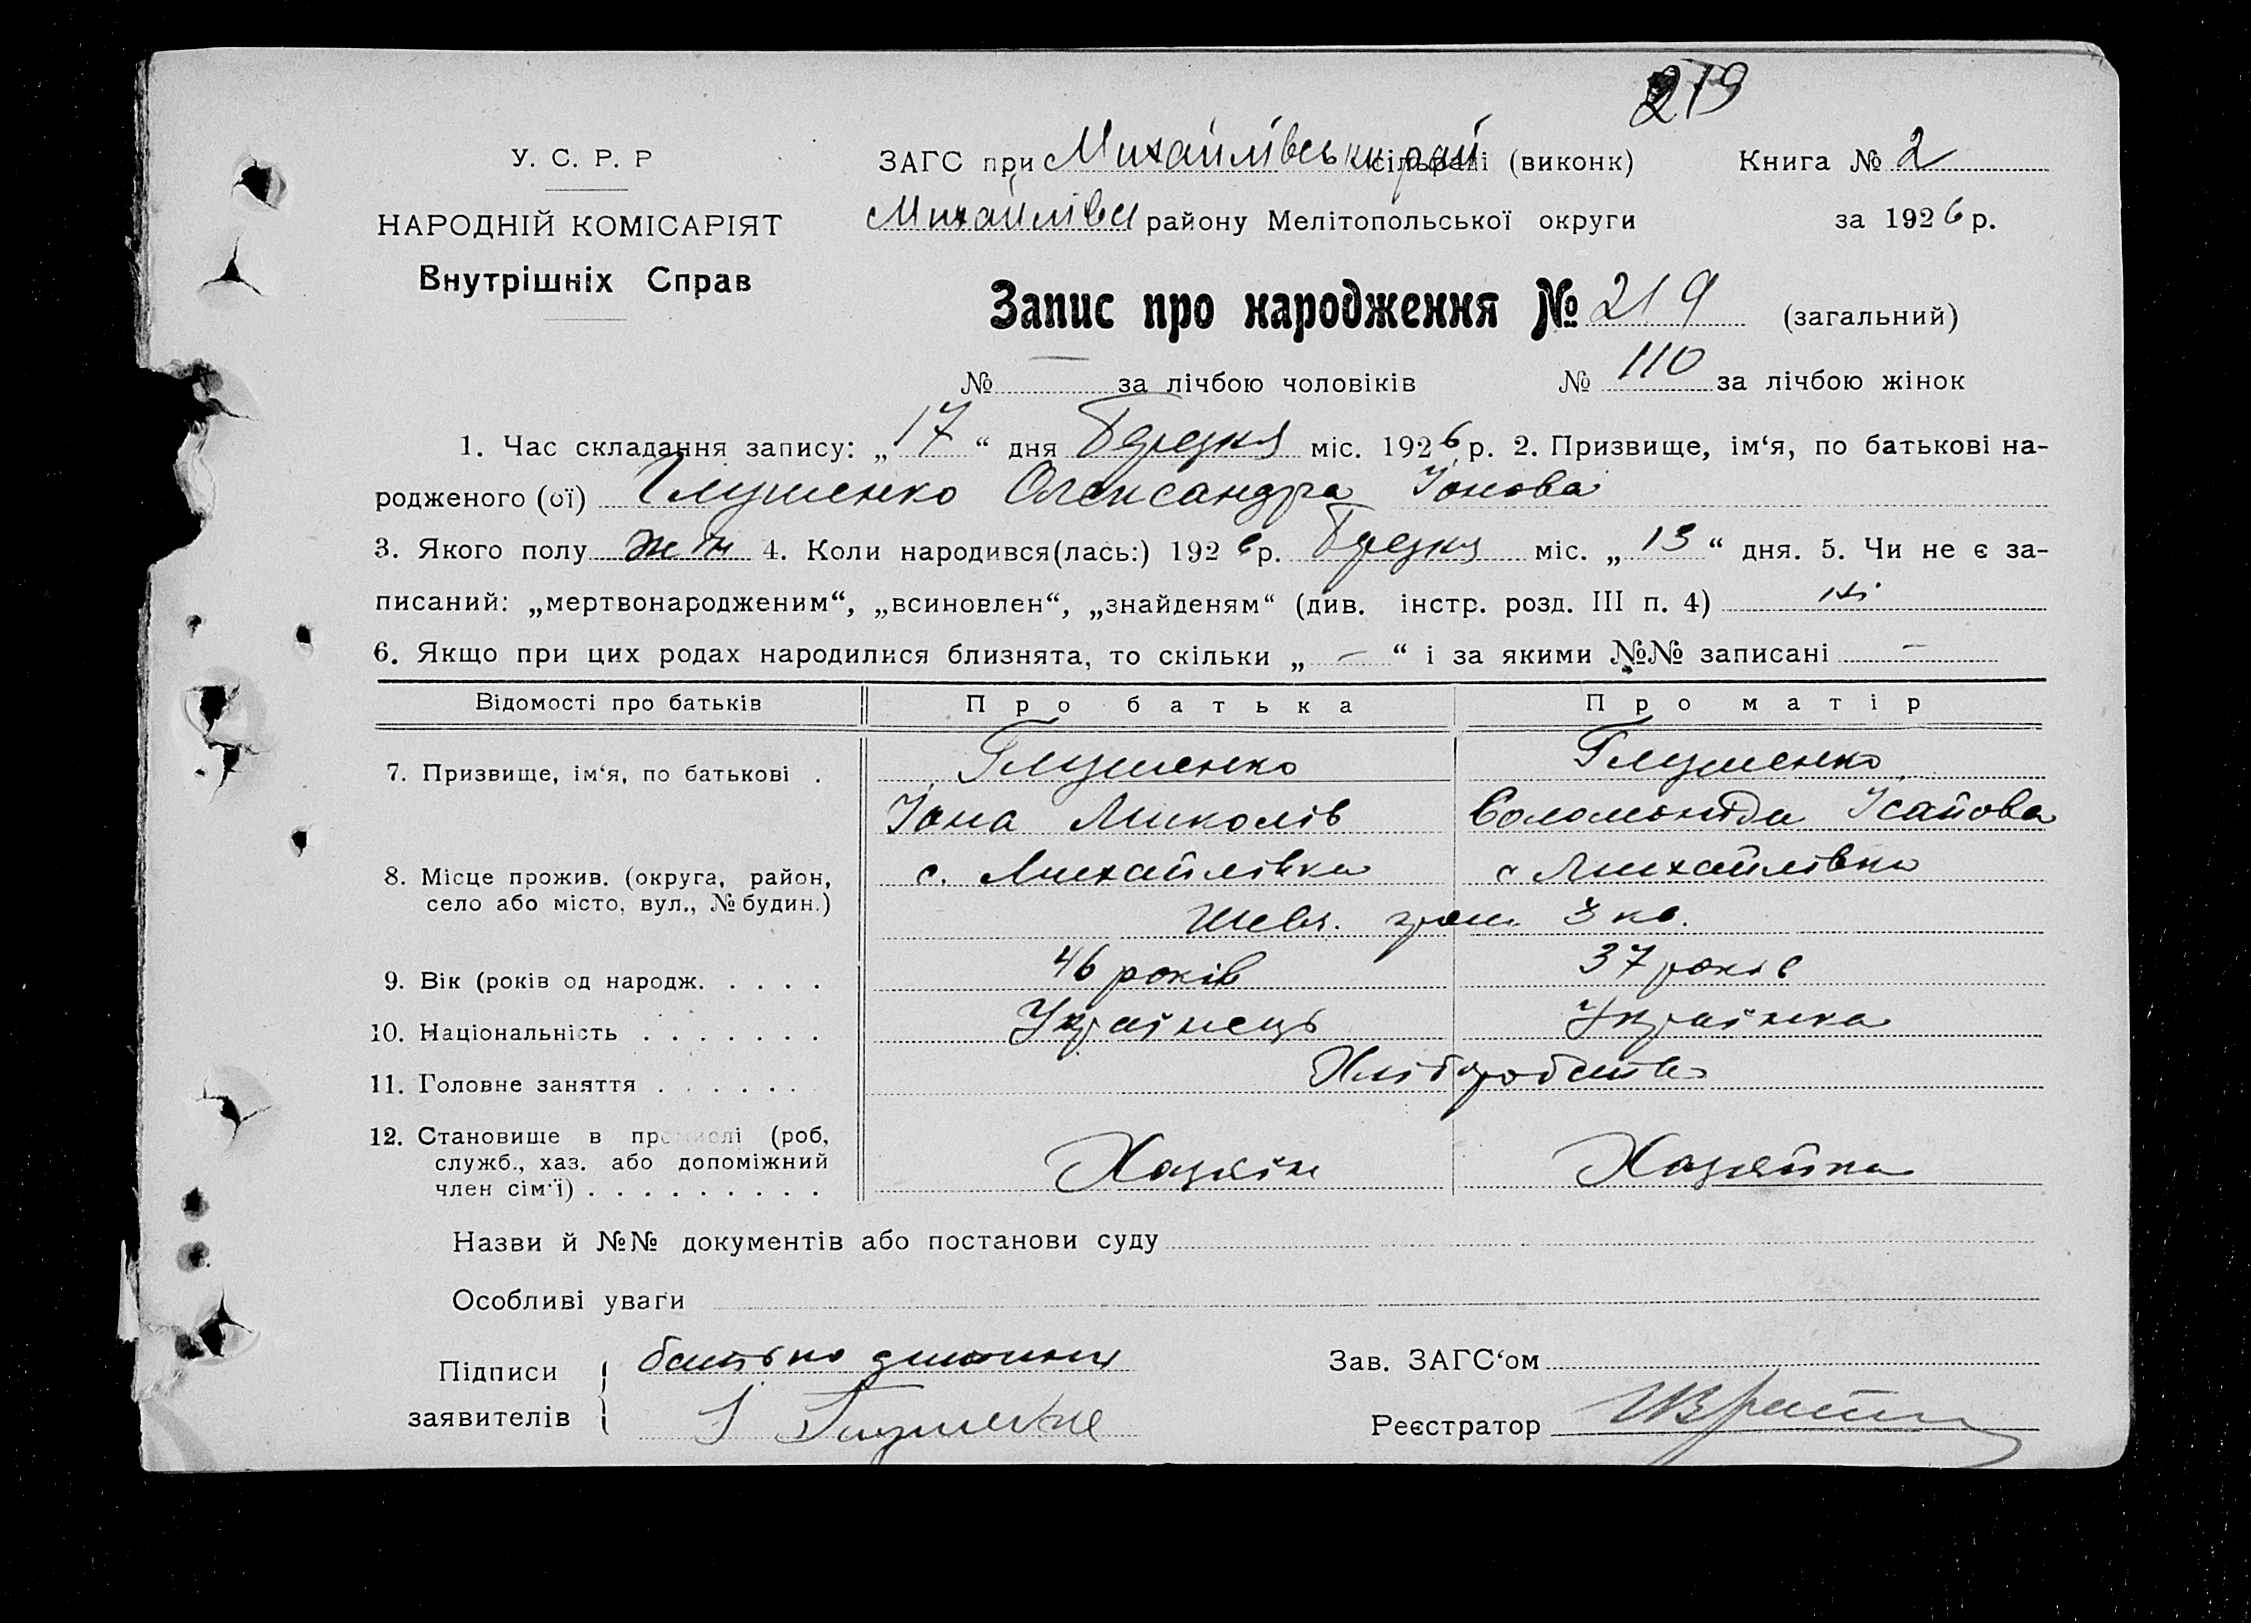 219
У. С. Р. Р
ЗАГС при Михайлівськ рай сільраді (виконк) Книга № 2
НАРОДНІЙ КОМІСАРІЯТ
Михайлівсь району Мелітопольської округи за 1926 р.
Внутрішніх Справ
Запис про народження № 219 (загальний)
№ — за лічбою чоловіків № 110 за лічбою жінок
1. Час складання запису: „17“ дня Березня міс. 1926 р. 2. Призвище, ім‘я, по батькові на-
родженого (ої) Глушенко Олександра Іонова
3. Якого полу жін 4. Коли народився(лась:) 1926 р. Березня міс. „13“ дня. 5. Чи не є за-
писаний: „мертвонародженим“, „всиновлен“, „знайденям“ (див. інстр. розд. III п. 4) ні
6. Якщо при цих родах народилися близнята, то скільки „—“ і за якими №№ записані —
Відомості про батьків Про батька Про матір
7. Призвище, ім‘я, по батькові . Глушенко Глушенко
Іона Миколів Соломоніда Ісайова
8. Місце прожив. (округа, район, с. Михайлівка с Михайлівка
село або місто, вул., № будин.)
Шевч. гром. 3 кв.
9. Вік (років од народж. . . . . 46 років 37 років
10. Національність . . . . . . . Українець Українка
11. Головне заняття . . . . . . Хлібробство
12. Становище в промислі (роб,
служб., хаз. або допоміжний Хазяїн Хазяйка
член сім‘ї) . . . . . . . . .
Назви й №№ документів або постанови суду
Особливі уваги
Підписи батько дитини Зав. ЗАГС‘ом
заявителів І Глушенко Реєстратор